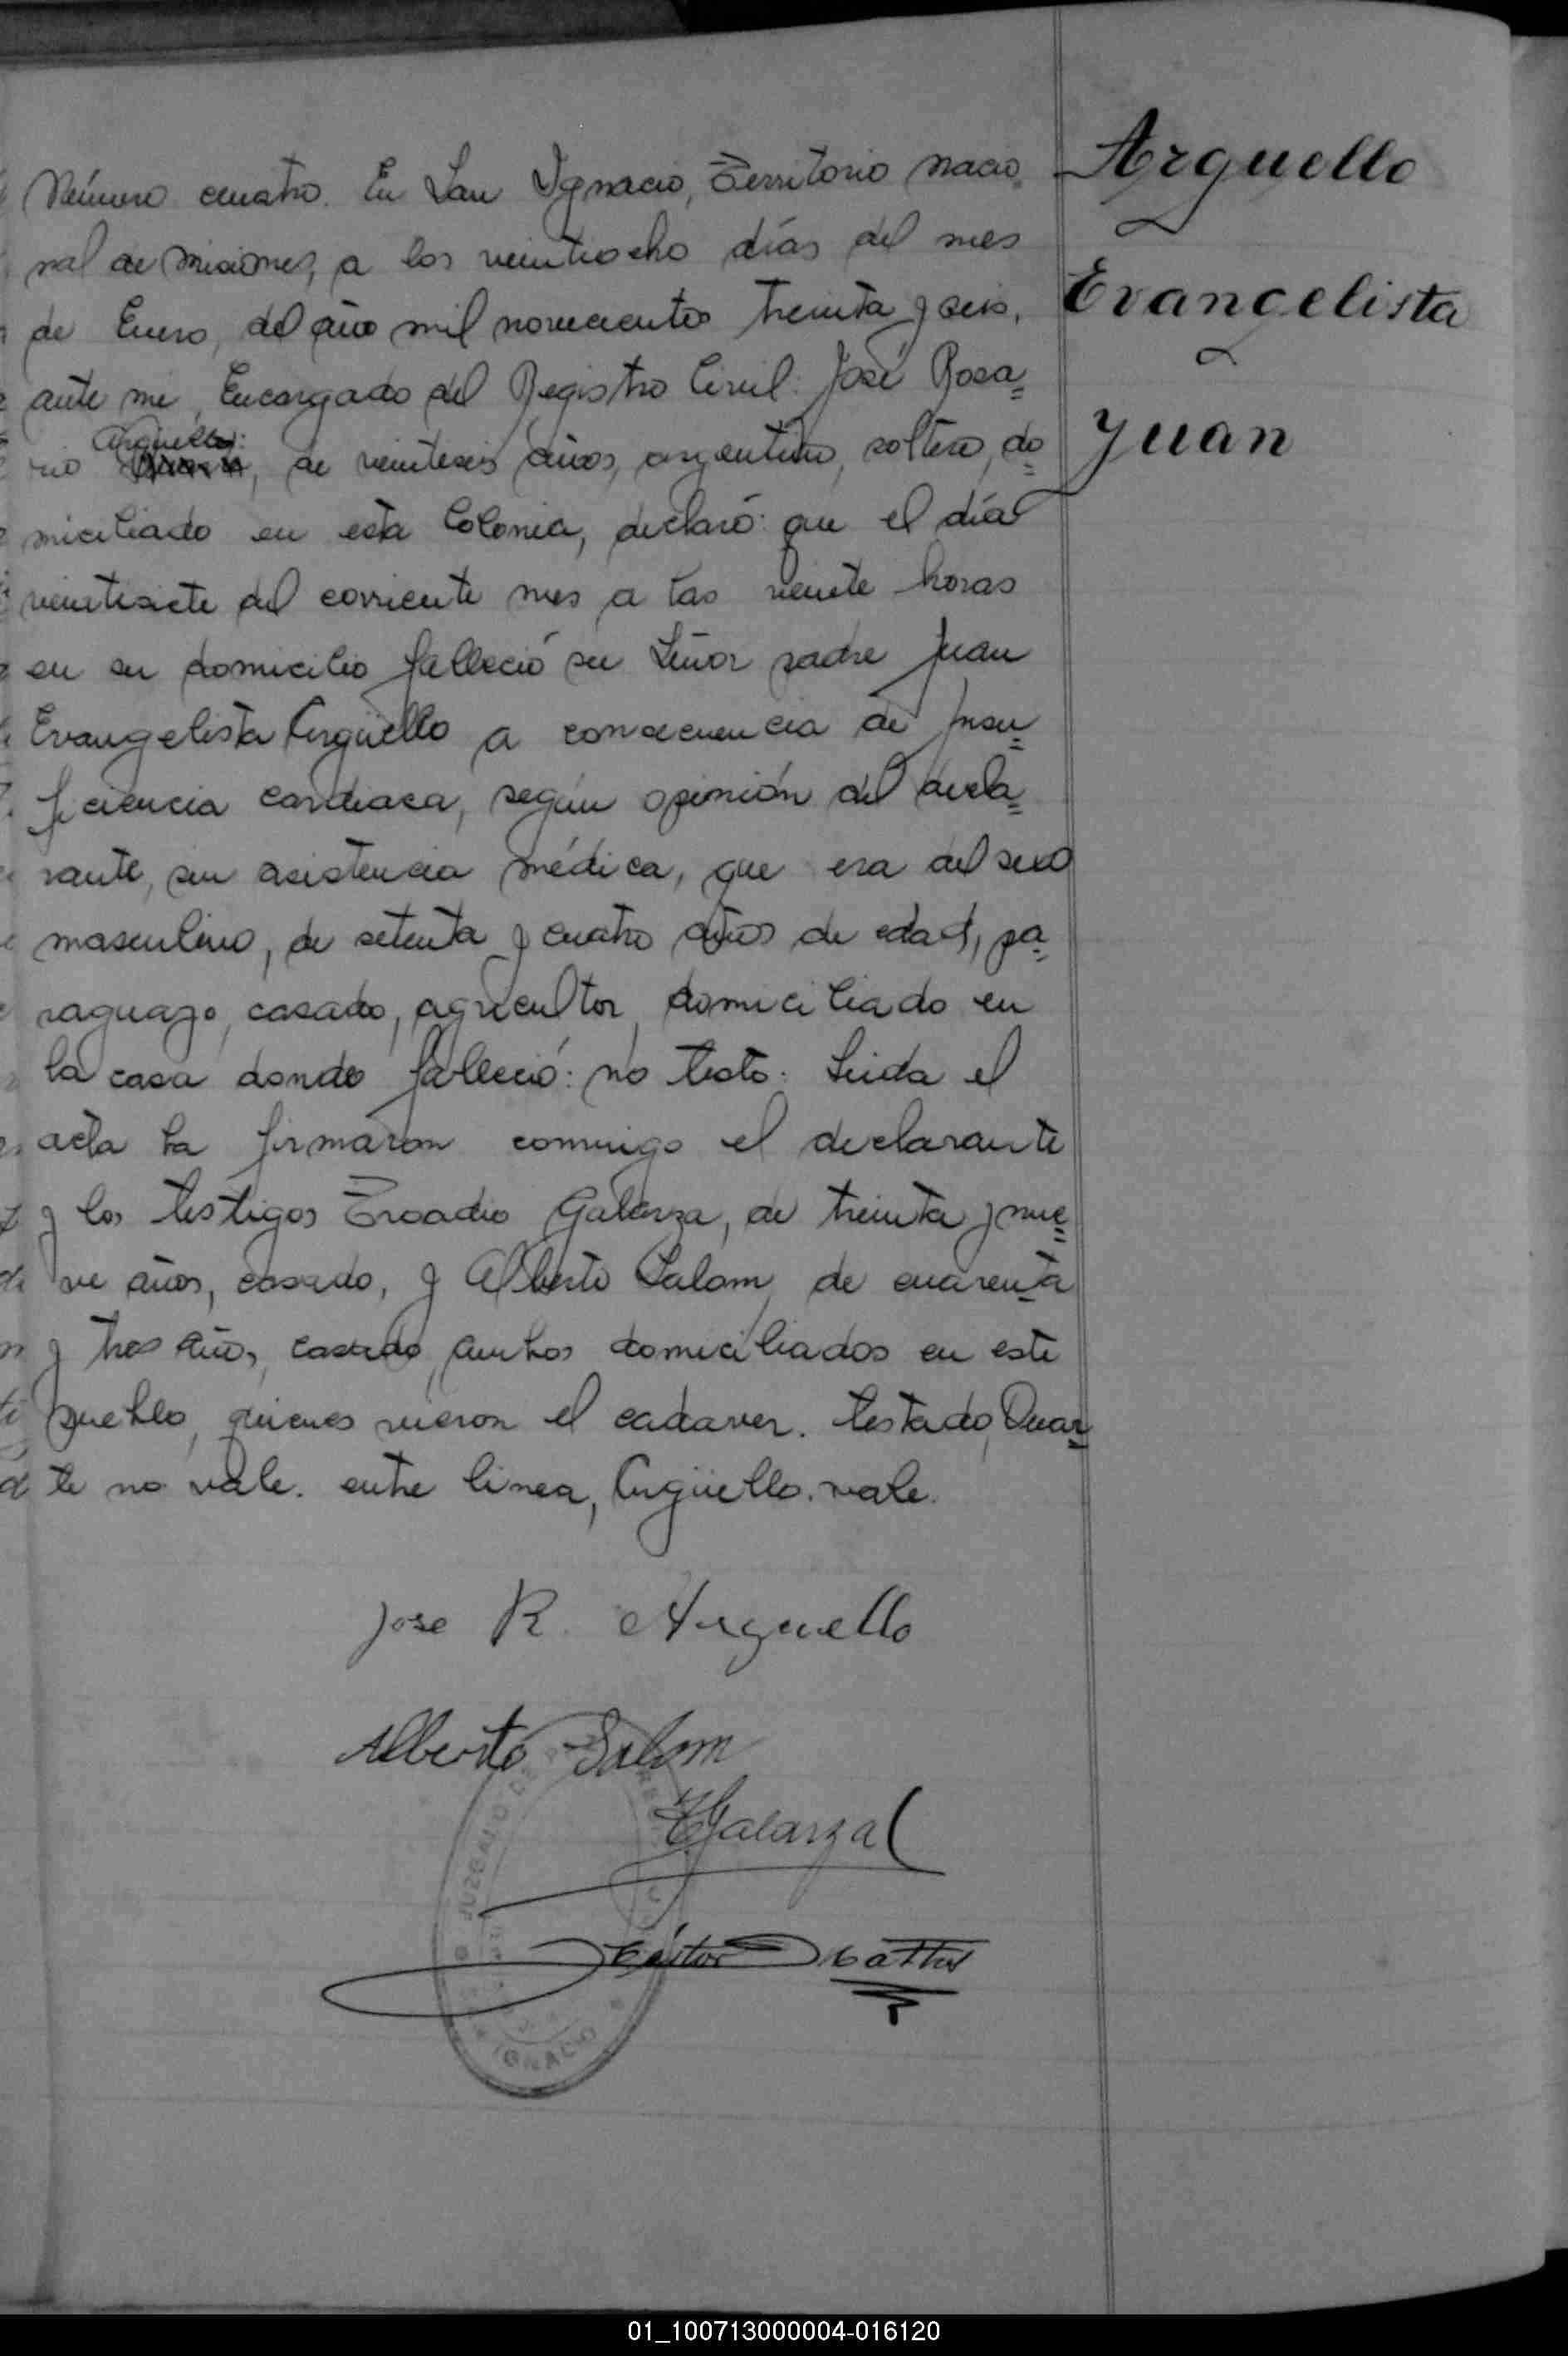 Número cuatro. En San Ignacio, Territorio nacio
nal de Misiones, a los veintiocho días del mes
de Enero, del año mil novecientos treinta y seis,
ante mi, Encargado del Registro Civil: José Rosa=
Argüello:
rio, de veinteseis años, argentino, soltero, do=
miciliado en esta Colonia, declaró: que el día
veintisiete del corriente mes a las veinte horas
en su domicilio falleció su Señor padre Juan
Evangelista Argüello a consecuencia de Insu=
ficiencia cardiaca, según opinión del decla=
rante, sin asistencia médica, que era del sexo
masculino, de setenta y cuatro años de edad, pa=
raguayo, casado, agricultor, domiciliado en
la casa donde falleció: no testo. Leida el
acta la firmaron conmigo el declarante
y los testigos Eroadio Galarza, de treinta y nue=
ve años, casado, y Alberto Salom, de cuarenta
y tres años, casado, ambos domiciliados en este
pueblo, quienes vieron el cadaver. Testado, Duar=
te no vale. entre linea, Argüello. vale.
Jose R. Arguello
Alberto Salom
Galarza
Héctor
JUZGADO DE
IGNACIO
Arguello
Evangelista
Juan
01_100713000004-016120